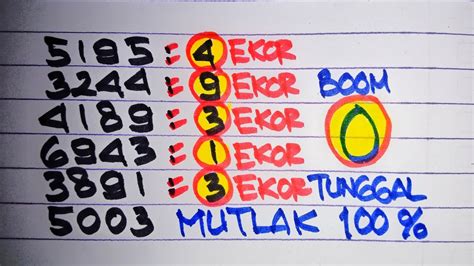 5195 = 4 EKOR
3244 = 9 EKOR BOOM
4189 = 3 EKOR 0
6943 = 1 EKOR
3891 = 3 EKOR TUNGGAL
5003 MUTLAK 100%